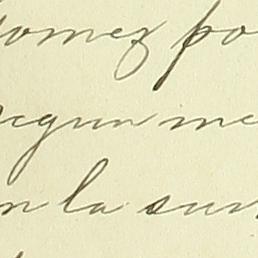 omez po
egun me
n la sum